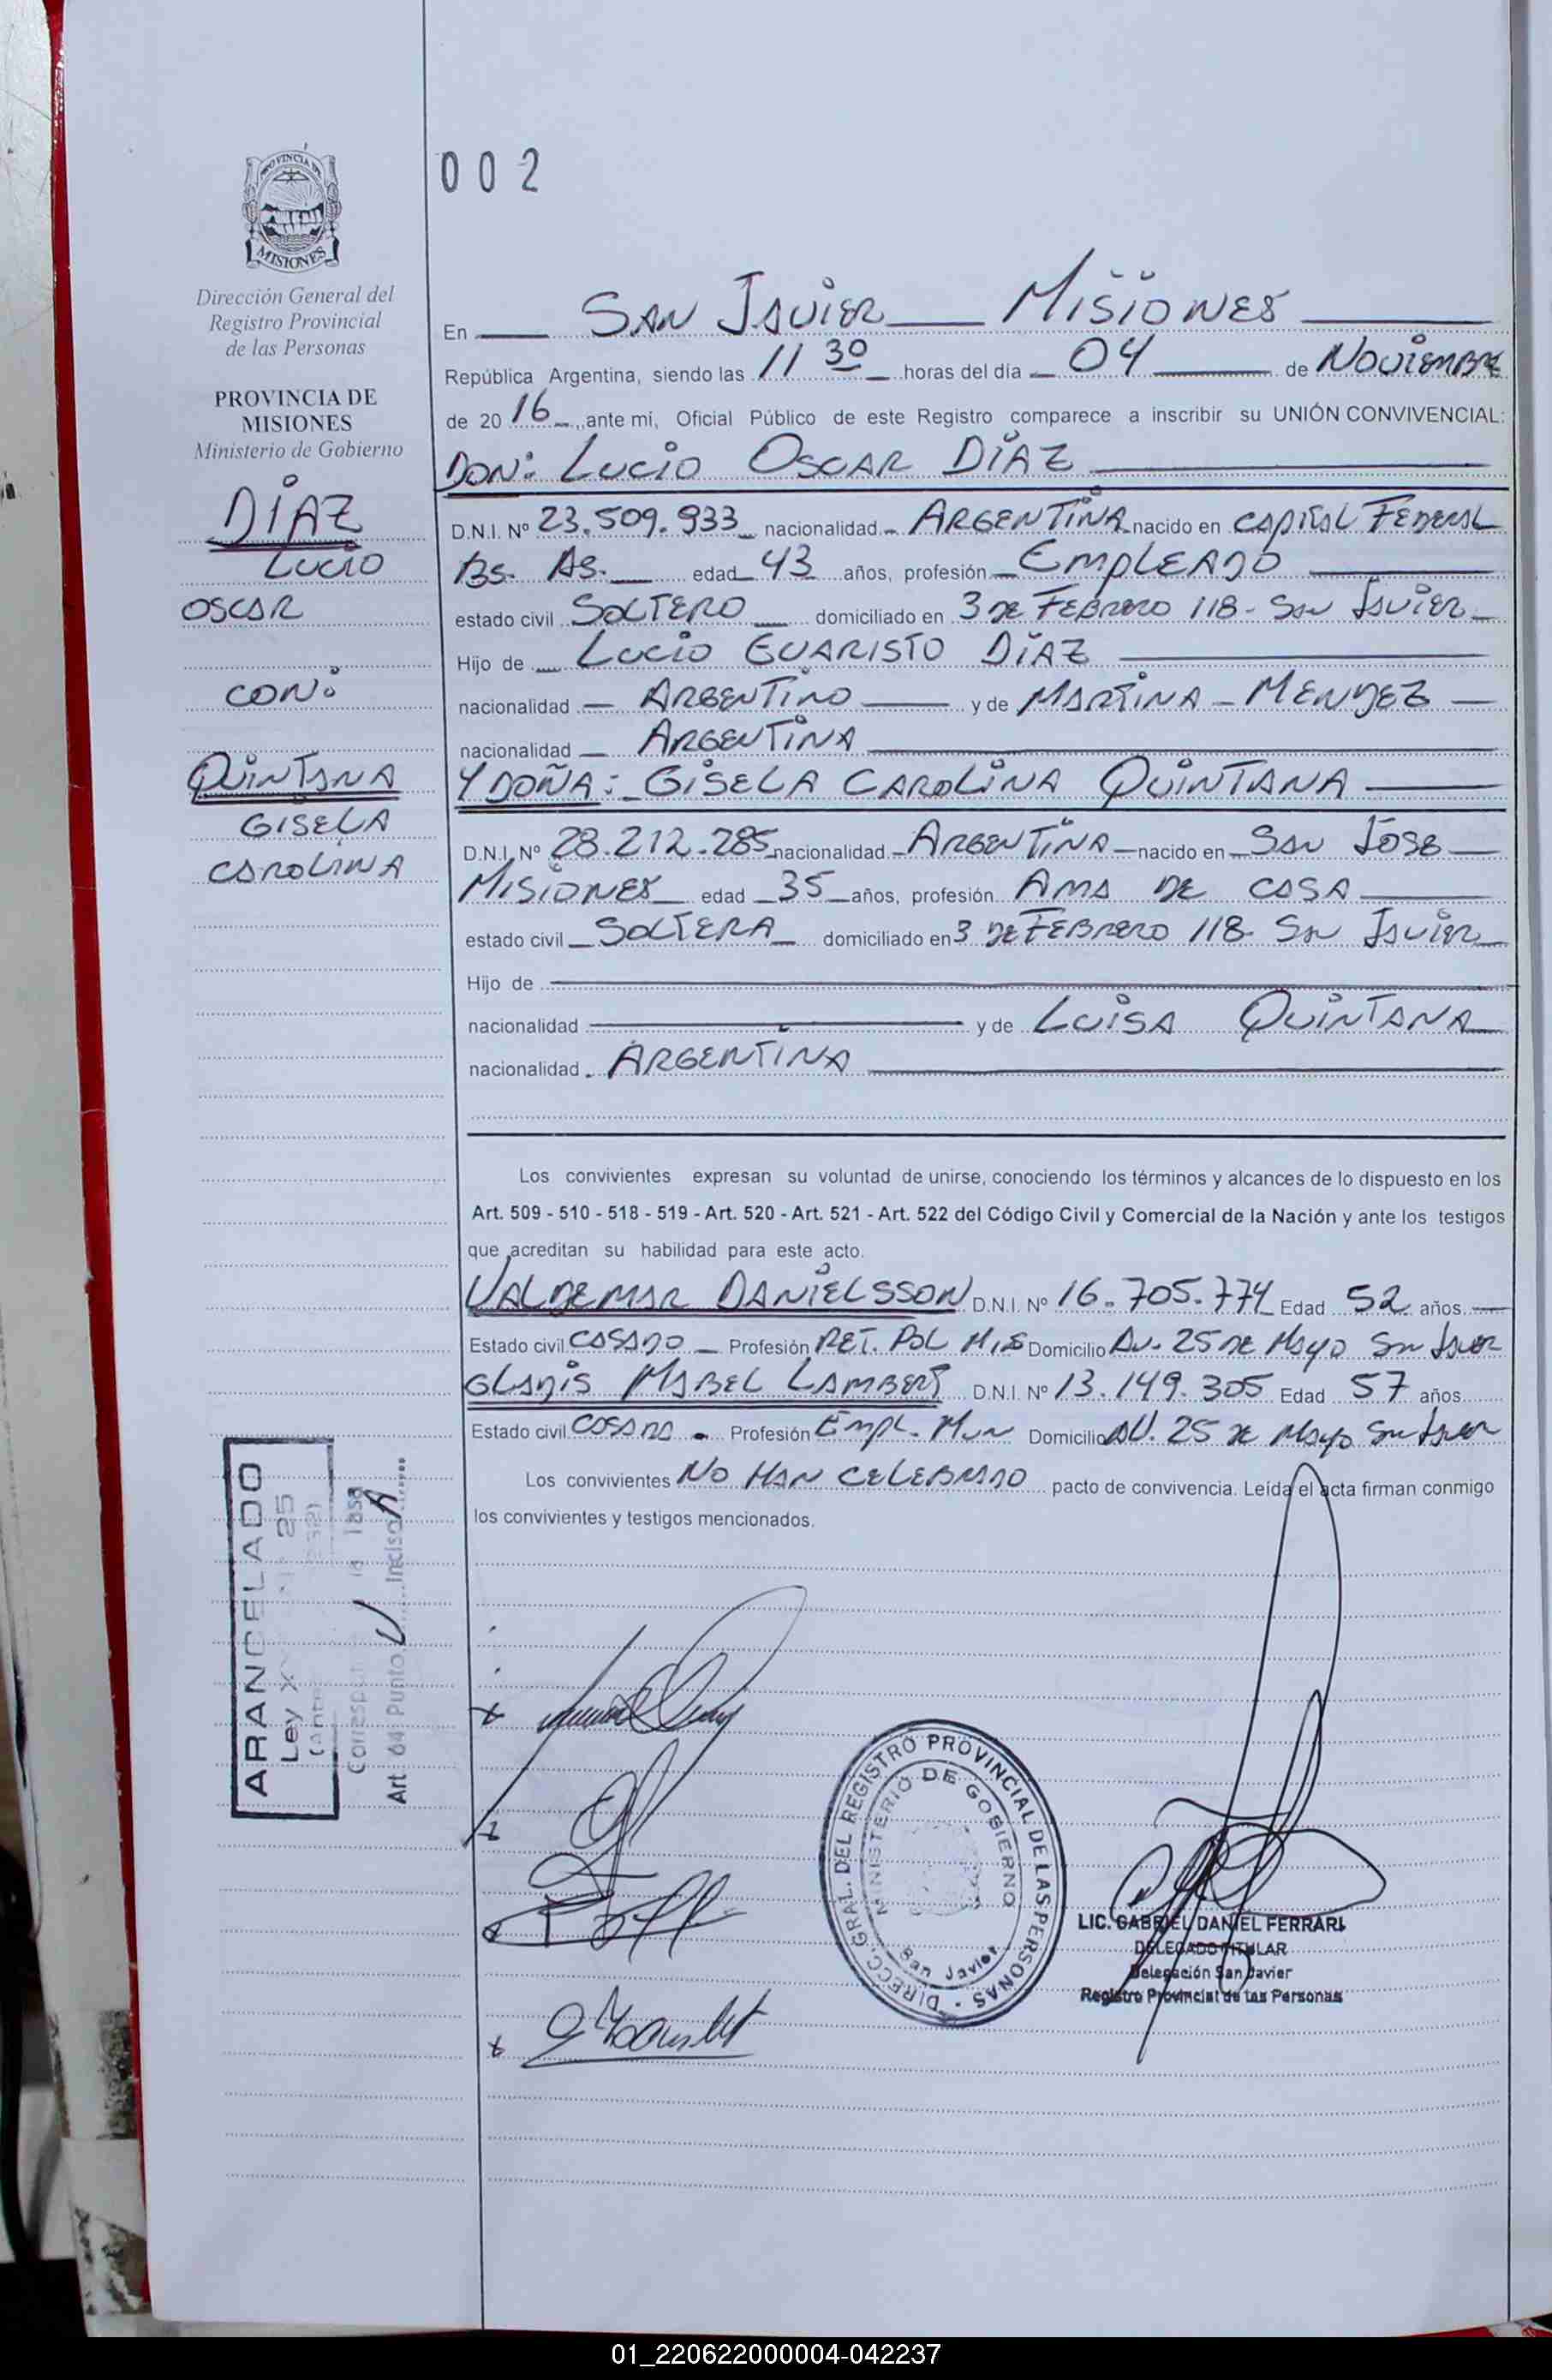 002
PROVINCIA DE
MISIONES
Dirección General del
Registro Provincial
de las Personas
PROVINCIA DE
MISIONES
Ministerio de Gobierno
DÍAZ
LUCIO
OSCAR
CON:
QUINTANA
GISELA
CAROLINA
En SAN JAVIER MISIONES
República Argentina, siendo las 11 30 horas del día 04 de NOVIEMBRE
de 2016 ante mí, Oficial Público de este Registro comparece a inscribir su UNIÓN CONVIVENCIAL:
DON: LUCIO OSCAR DÍAZ
D.N.I. Nº 23.509.933 nacionalidad ARGENTINA nacido en CAPITAL FEDERAL
BS. AS. edad 43 años, profesión EMPLEADO
estado civil SOLTERO domiciliado en 3 DE FEBRERO 118 - SAN JAVIER
Hijo de LUCIO EVARISTO DÍAZ
nacionalidad ARGENTINO y de MARTINA - MENDEZ
nacionalidad ARGENTINA
Y DOÑA: GISELA CAROLINA QUINTANA
D.N.I. Nº 28.212.285 nacionalidad ARGENTINA nacido en SAN JOSE
MISIONES edad 35 años, profesión AMA DE CASA
estado civil SOLTERA domiciliado en 3 DE FEBRERO 118 - SAN JAVIER
Hijo de
nacionalidad y de LUISA QUINTANA
nacionalidad ARGENTINA
Los convivientes expresan su voluntad de unirse, conociendo los términos y alcances de lo dispuesto en los
Art. 509 - 510 - 518 - 519 - Art. 520 - Art. 521 - Art. 522 del Código Civil y Comercial de la Nación y ante los testigos
que acreditan su habilidad para este acto.
VALDEMAR DANIELSSON D.N.I. Nº 16.705.774 Edad 52 años.
Estado civil CASADO Profesión RET. POL MIS Domicilio AV. 25 DE MAYO SAN JAVIER
GLADIS MABEL LAMBERT D.N.I. Nº 13.149.305 Edad 57 años
Estado civil CASADA Profesión EMPL. MUN Domicilio AV. 25 DE MAYO SAN JAVIER
Los convivientes NO HAN CELEBRADO pacto de convivencia. Leída el acta firman conmigo
los convivientes y testigos mencionados.
ARANCELADO
Ley X 25
Corresp la Tasa
Art 64 Punto V Inciso A
DIRECC. GRAL. DEL REGISTRO PROVINCIAL DE LAS PERSONAS -
MINISTERIO DE GOBIERNO
San Javier
LIC. GABRIEL DANIEL FERRARI
DELEGADO TITULAR
Delegación San Javier
Registro Provincial de las Personas
01_220622000004-042237